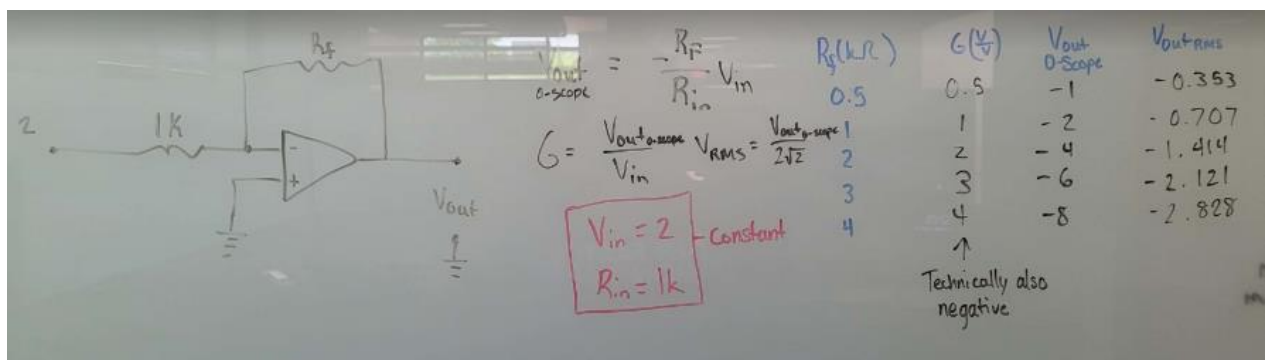 R_f
2
1K
-
+
Vout
Vout o-scope = -R_F/R_in V_in
G = Vout o-scope/V_in V_RMS = Vout o-scope/2√2
V_in = 2
R_in = 1k
Constant
R_f(kΩ) G(V/V) Vout O-Scope Vout RMS
0.5 0.5 -1 -0.353
1 1 -2 -0.707
2 2 -4 -1.414
3 3 -6 -2.121
4 4 -8 -2.828
Technically also
negative